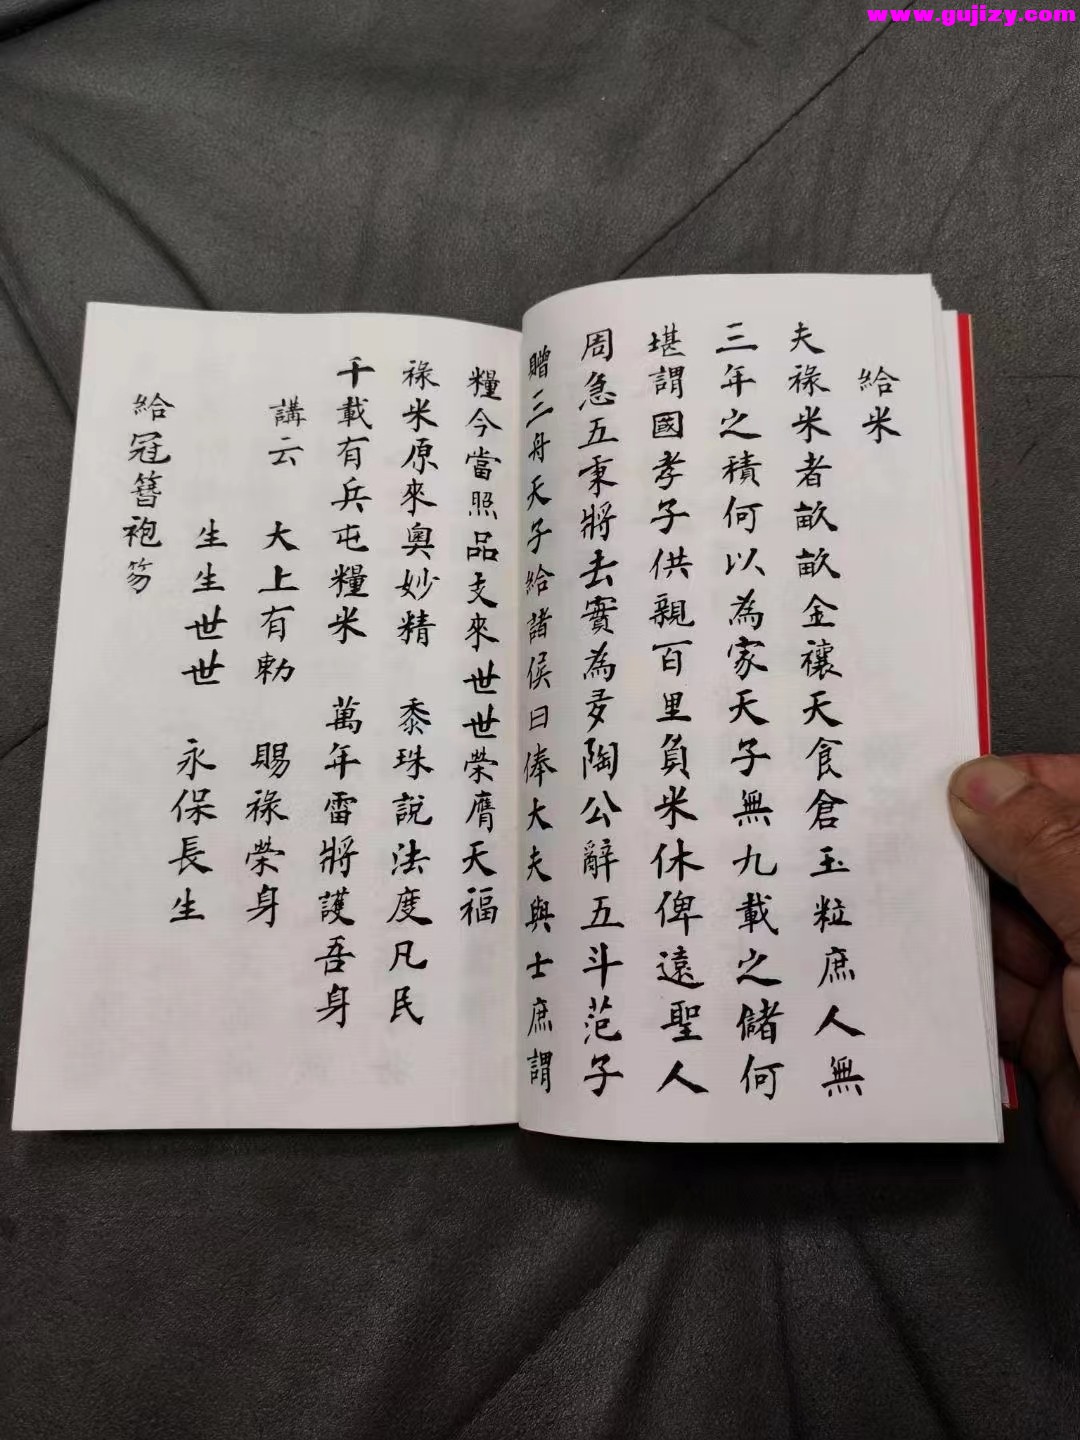 www.gujizy.com
給米
夫祿米者畝畝金穰天食倉玉粒庶人無
三年之積何以為家天子無九載之儲何
堪謂國孝子供親百里負米休俾遠聖人
周急五秉將去實為多陶公辭五斗范子
贈三舟天子給諸侯曰俸大夫與士庶謂
糧今當照品支來世世榮膺天福
祿米原來奧妙精 黍珠說法度凡民
千載有兵屯糧米 萬年雷將護吾身
講云 大上有勅 賜祿榮身
生生世世 永保長生
給冠簪袍笏